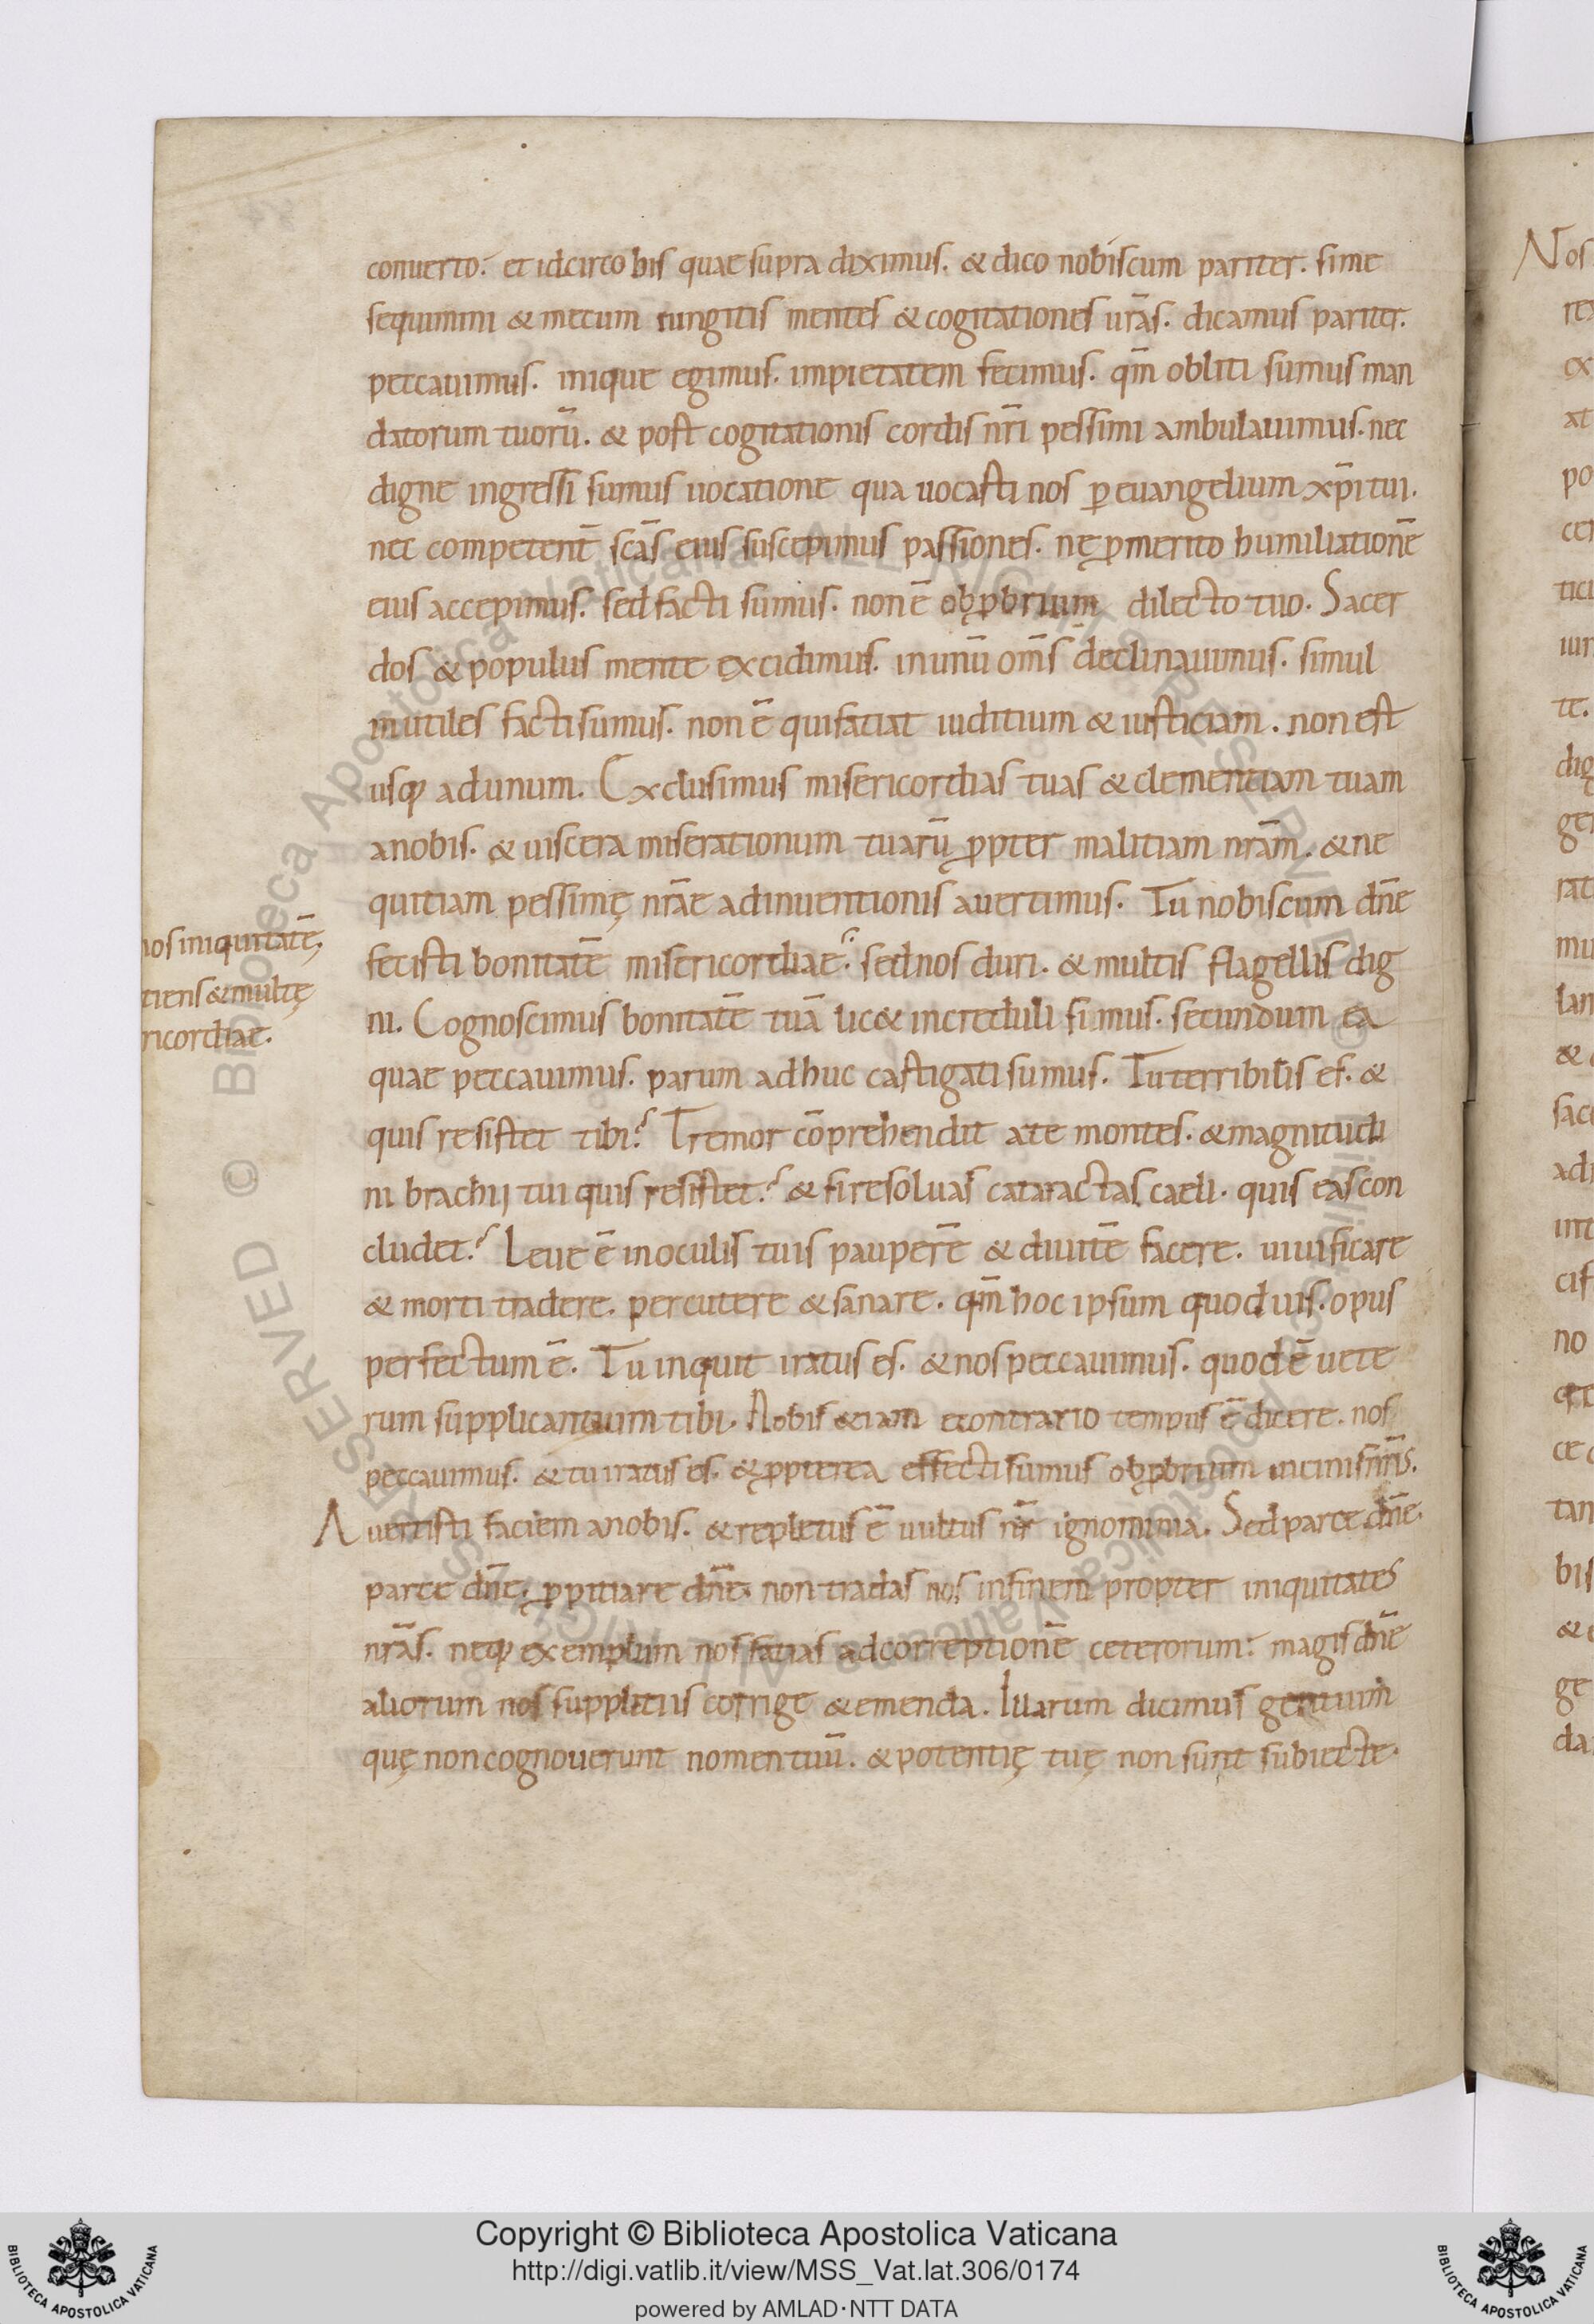 conuerto. et idcirco his quae supra diximus. & dico nobiscum pariter. sime
sequimini & mecum iungitis mentes & cogitationes ur̄as. dicamus pariter.
peccauimus. inique egimus. impietatem fecimus. qm̄ obliti sumus man
datorum tuorū. & post cogitationis cordis nr̄i pessimi ambulauimus. nec
digne ingressi sumus uocatione qua uocasti nos ꝑ euangelium xp̄i tui.
nec competent̄ scās eius suscepimus passiones. nę ꝓmerito humilationē
eius accepimus. sed facti sumus. non ē obꝓbrium dilecto tuo. Sacer
dos & populus mente excidimus. in unū om̄s declinauimus. simul
inutiles facti sumus. non ē qui fatiat iuditium & iusticiam. non est
usq; ad unum. Exclusimus misericordias tuas & clementiam tuam
a nobis. & uiscera miserationum tuarū ꝓpter malitiam nrām. & ne
quitiam pessimę nrāe adinuentionis auertimus. Tu nobiscum dn̄e
fecisti bonitatē misericordiae. sed nos duri. & multis flagellis dig
ni. Cognoscimus bonitatē tuā lic& increduli simus. secundum ea
quae peccauimus. parum adhuc castigati sumus. Tu terribilis es. &
quis resistet tibi? Tremor cōprehendit a te montes. & magnitudi
ni brachij tui quis resistet? & si resoluas cataractas caeli. quis eas con
cludet? Leue ē in oculis tuis pauperē & diuitē facere. uiuificare
& morti tradere. percutere & sanare. qm̄ hoc ipsum quod uis. opus
perfectum ē. Tu inquit iratus es. & nos peccauimus. quod ē uete
rum supplicantium tibi. Nobis &iam econtrario tempus ē dicere. nos
peccauimus. & tu iratus es. & ꝓpterea effecti sumus obꝓbrium uicinis nr̄is.
Auertisti faciem a nobis. & repletus ē uultus nr̄ ignominia. Sed parce dn̄e.
parce dn̄e. ꝓpitiare dn̄e. non tradas nos in finem propter iniquitates
nr̄as. neq; exemplum nos fatias ad correptionē ceterorum. magis dn̄e
aliorum nos suppliciis corrige & emenda. Illarum dicimus gentium
quę non cognouerunt nomen tuū. & potentię tuę non sunt subiecte.
nos iniquitatē,
tiens & multę
ricordiae.
Nos
Copyright © Biblioteca Apostolica Vaticana
http://digi.vatlib.it/view/MSS_Vat.lat.306/0174
powered by AMLAD·NTT DATA
BIBLIOTECA APOSTOLICA VATICANA
BIBLIOTECA APOSTOLICA VATICANA